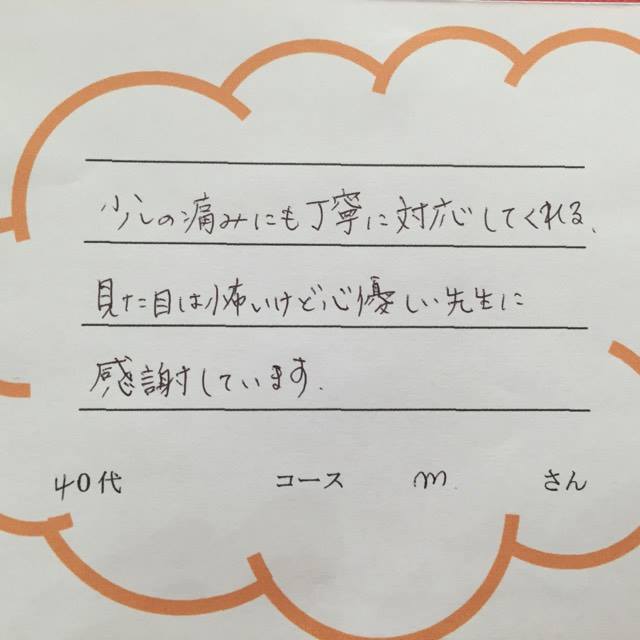 少しの痛みにも丁寧に対応してくれる、
見た目は怖いけど心優しい先生に
感謝しています.
40代 コース m. さん